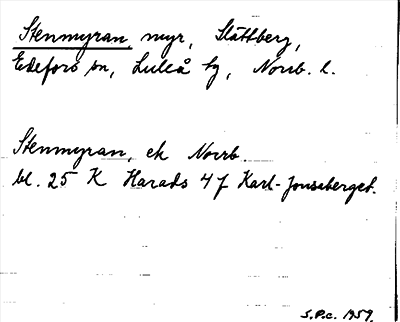 Stenmyran, myr, Slättberg,
Edefors sn, Luleå fg, Norrb. l.
Stenmyran, ek Norrb.
bl. 25 K Harads 4 f Karl-Jonsaberget.
S.P.C. 1959.